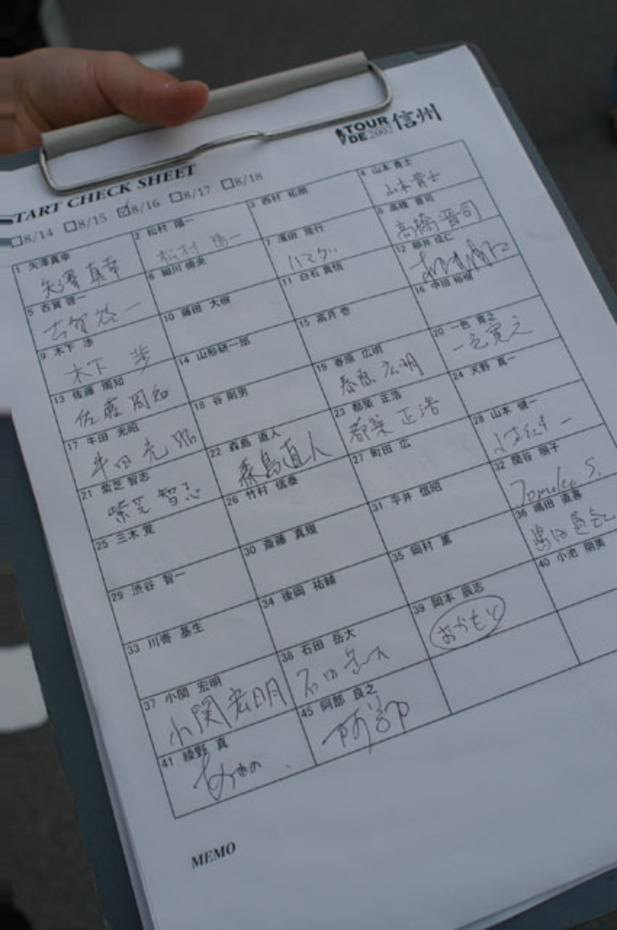 TOUR DE 2002 信州
START CHECK SHEET
□8/14 □8/15 ☑8/16 □8/17 □8/18
1 矢澤真幸 2 松村 陽一 3 西村 祐樹 4 山本 貴士
矢澤 真幸 松村 陽一 山本 貴士
5 古賀 啓一 6 細川 7 濱田 隆行 8 高橋 晋司
古賀 啓一 ハマダ 高橋 晋司
9 木下 渉 10 藤田 大樹 11 白石 真悟 12
木下 渉
13 佐藤 周知 14 山形研一郎 15 高月 16 中田 裕樹
佐藤 周知
17 牛田 光昭 18 谷 剛男 19 春原 広明 20 一色 寛之
牛田 光昭 春原 広明 一色 寛之
21 柴芝 智志 22 森島 直人 23 都築 正浩 24 天野 真一
柴芝 智志 森島直人 都築 正浩
25 三木 26 竹村 信泰 27 町田 広 28 山本 健一
29 渋谷 智一 30 斎藤 真規 31 平井 信昭 32 関谷 朋子
Tomoko S.
33 川嵜 基生 34 後岡 祐輔 35 岡村 薫 36 嶋田 直喜
37 小関 宏明 38 石田 岳大 39 岡本 辰志 40 小池 朋美
小関 宏明 石田 岳大 おかもと
41 綾野 真 45 阿部 良之
あやの 阿部
MEMO